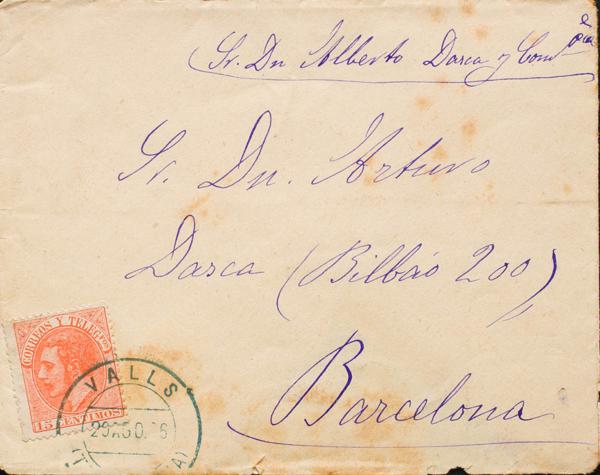 Sr. Dn. Alberto Dasca y Comp
Sr. Dn. Arturo
Dasca (Bilbáo 200)
Barcelona
CORREOS Y TELEGFOS
15 CENTIMOS
VALLS
29 AGO.